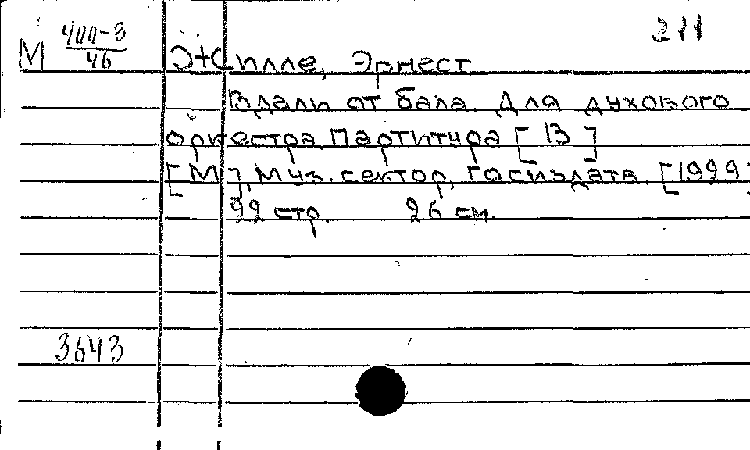 211
М 400-3
46
Жилле, Эрнест
Вдали от бала. Для духового
оркестра. Партитура [13]
[М.], Муз. сектор Госиздата [1929]
22 стр. 26 см.
3643